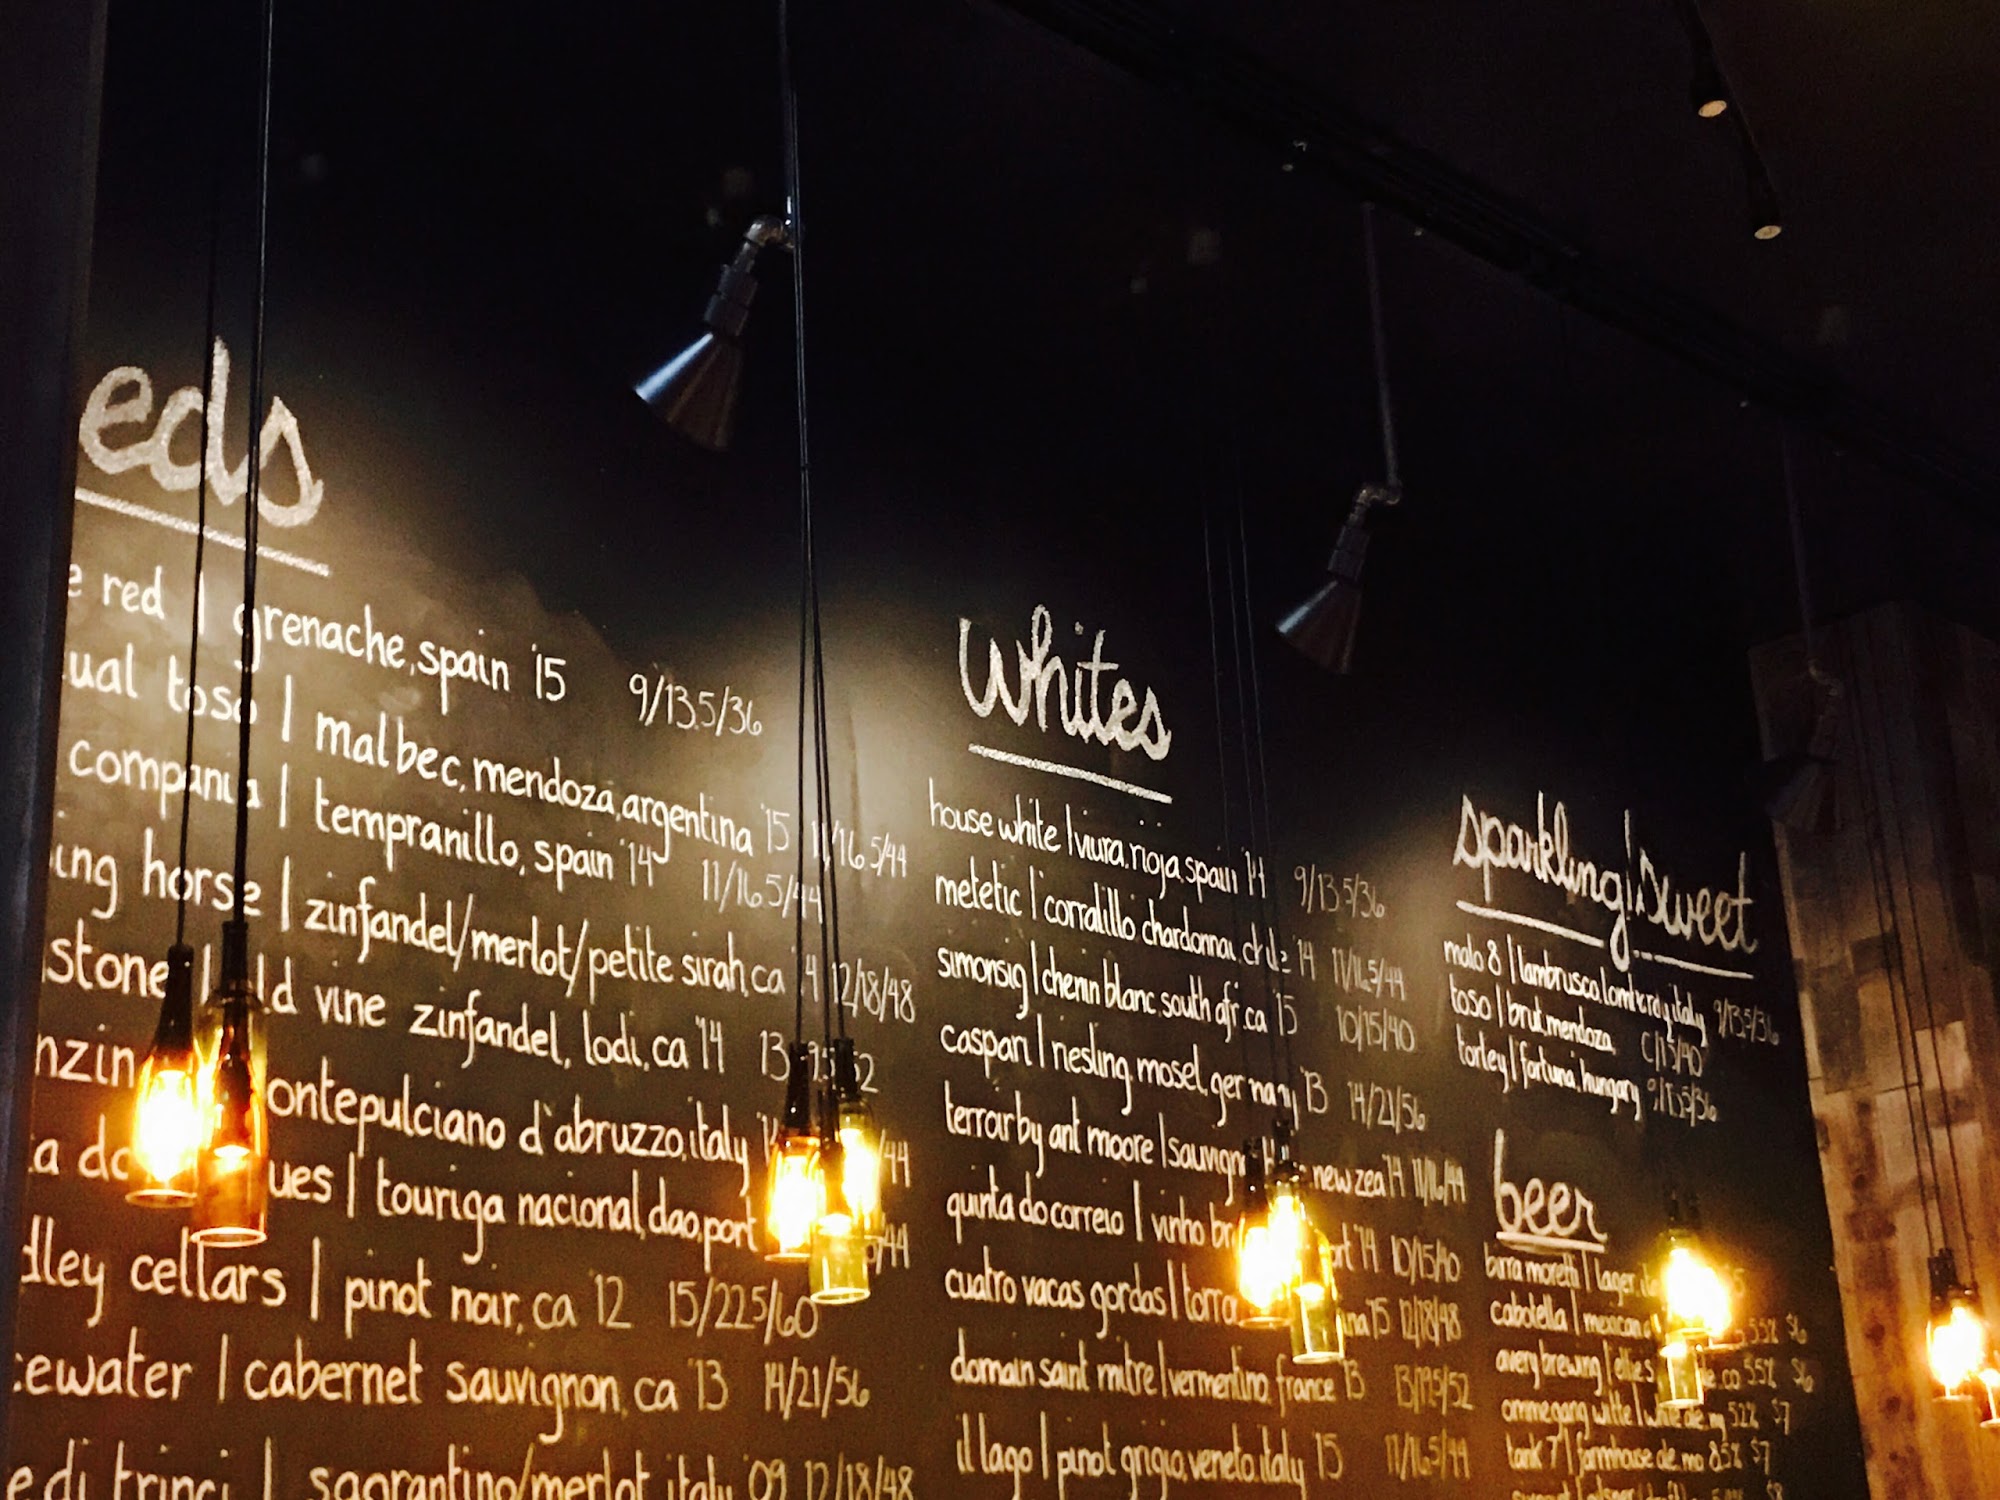 eds
e red | grenache, spain '15 9/13.5/36
ual toso | malbec, mendoza, argentina '15 11/16.5/44
compania | tempranillo, spain '14 11/16.5/44
ing horse | zinfandel/merlot/petite sirah, ca '14 12/18/48
stone | old vine zinfandel, lodi, ca '14
nzin ontepulciano d'abruzzo, italy /44
a do ues | touriga nacional, dao, port /44
dley cellars | pinot noir, ca '12 15/22.5/60
ewater | cabernet sauvignon, ca '13 14/21/56
e di trinci | sagrantino/merlot, italy '09 12/18/48
whites
house white | viura, rioja, spain '14 9/13.5/36
metetic | corralillo chardonnai, chile '14 11/16.5/44
simonsig | chenin blanc, south afr.ca '15 10/15/40
caspari | riesling, mosel, germany '13 14/21/56
terroir by ant moore | sauvign new zea '14 11/16/44
quinta do correio | vinho br ort '14 10/15/40
cuatro vacas gordas | torro ina '15 12/18/48
domain saint mitre | vermentino, france '13 13/19.5/52
il lago | pinot grigio, veneto, italy '15 11/16.5/44
sparkling | sweet
malo 8 | lambrusco, lombardy, italy 9/13.5/36
toso | brut, mendoza,
torley | fortuna, hungary 9/13.5/36
beer
birra moretti | lager,
cabotella | mexican 5.5% $6
avery brewing | ellie's co 5.5% $6
ommegang witte | white ale, ny 5.2% $7
tank 7 | farmhouse ale, mo 8.5% $7